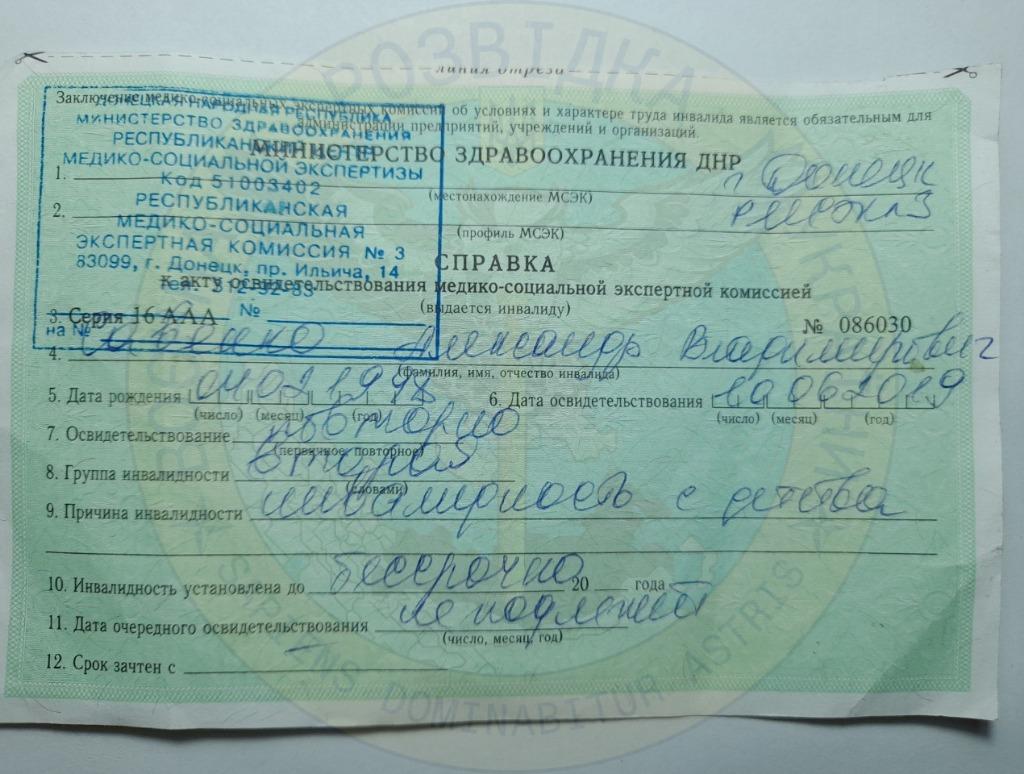 линия отреза
Заключение медико-социальных экспертных комиссий об условиях и характере труда инвалида является обязательным для
администрации предприятий, учреждений и организаций.
МИНИСТЕРСТВО ЗДРАВООХРАНЕНИЯ ДНР
ДОНЕЦКАЯ НАРОДНАЯ РЕСПУБЛИКА
МИНИСТЕРСТВО ЗДРАВООХРАНЕНИЯ
РЕСПУБЛИКАНСКИЙ
МЕДИКО-СОЦИАЛЬНОЙ ЭКСПЕРТИЗЫ
Код 51003402
РЕСПУБЛИКАНСКАЯ
МЕДИКО-СОЦИАЛЬНАЯ
ЭКСПЕРТНАЯ КОМИССИЯ № 3
83099, г. Донецк, пр. Ильича, 14
тел.
№
на №
1. г. Донецк
(местонахождение МСЭК)
2.
(профиль МСЭК)
СПРАВКА
к акту освидетельствования медико-социальной экспертной комиссией
(выдается инвалиду)
3. Серия 16 ААА № 086030
4. Александр Владимирович
(фамилия, имя, отчество инвалида)
5. Дата рождения 04 02 1998 6. Дата освидетельствования 10 06 2019
(число) (месяц) (год) (число) (месяц) (год)
7. Освидетельствование повторно
(первичное, повторное)
8. Группа инвалидности вторая
(словами)
9. Причина инвалидности инвалидность с детства
10. Инвалидность установлена до бессрочно 20 года
11. Дата очередного освидетельствования не подлежит
(число, месяц, год)
12. Срок зачтен с
РОЗВІДКА УКРАЇНИ
SAPIENS DOMINABITUR ASTRIS